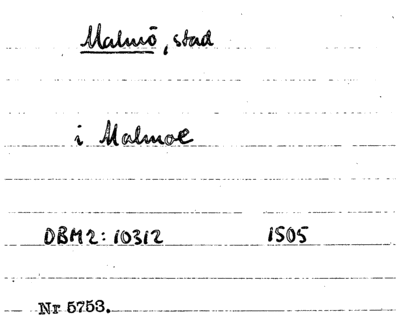 Malmö, stad
i Malmoe
DBM2: 10312 1505
Nr 5753.